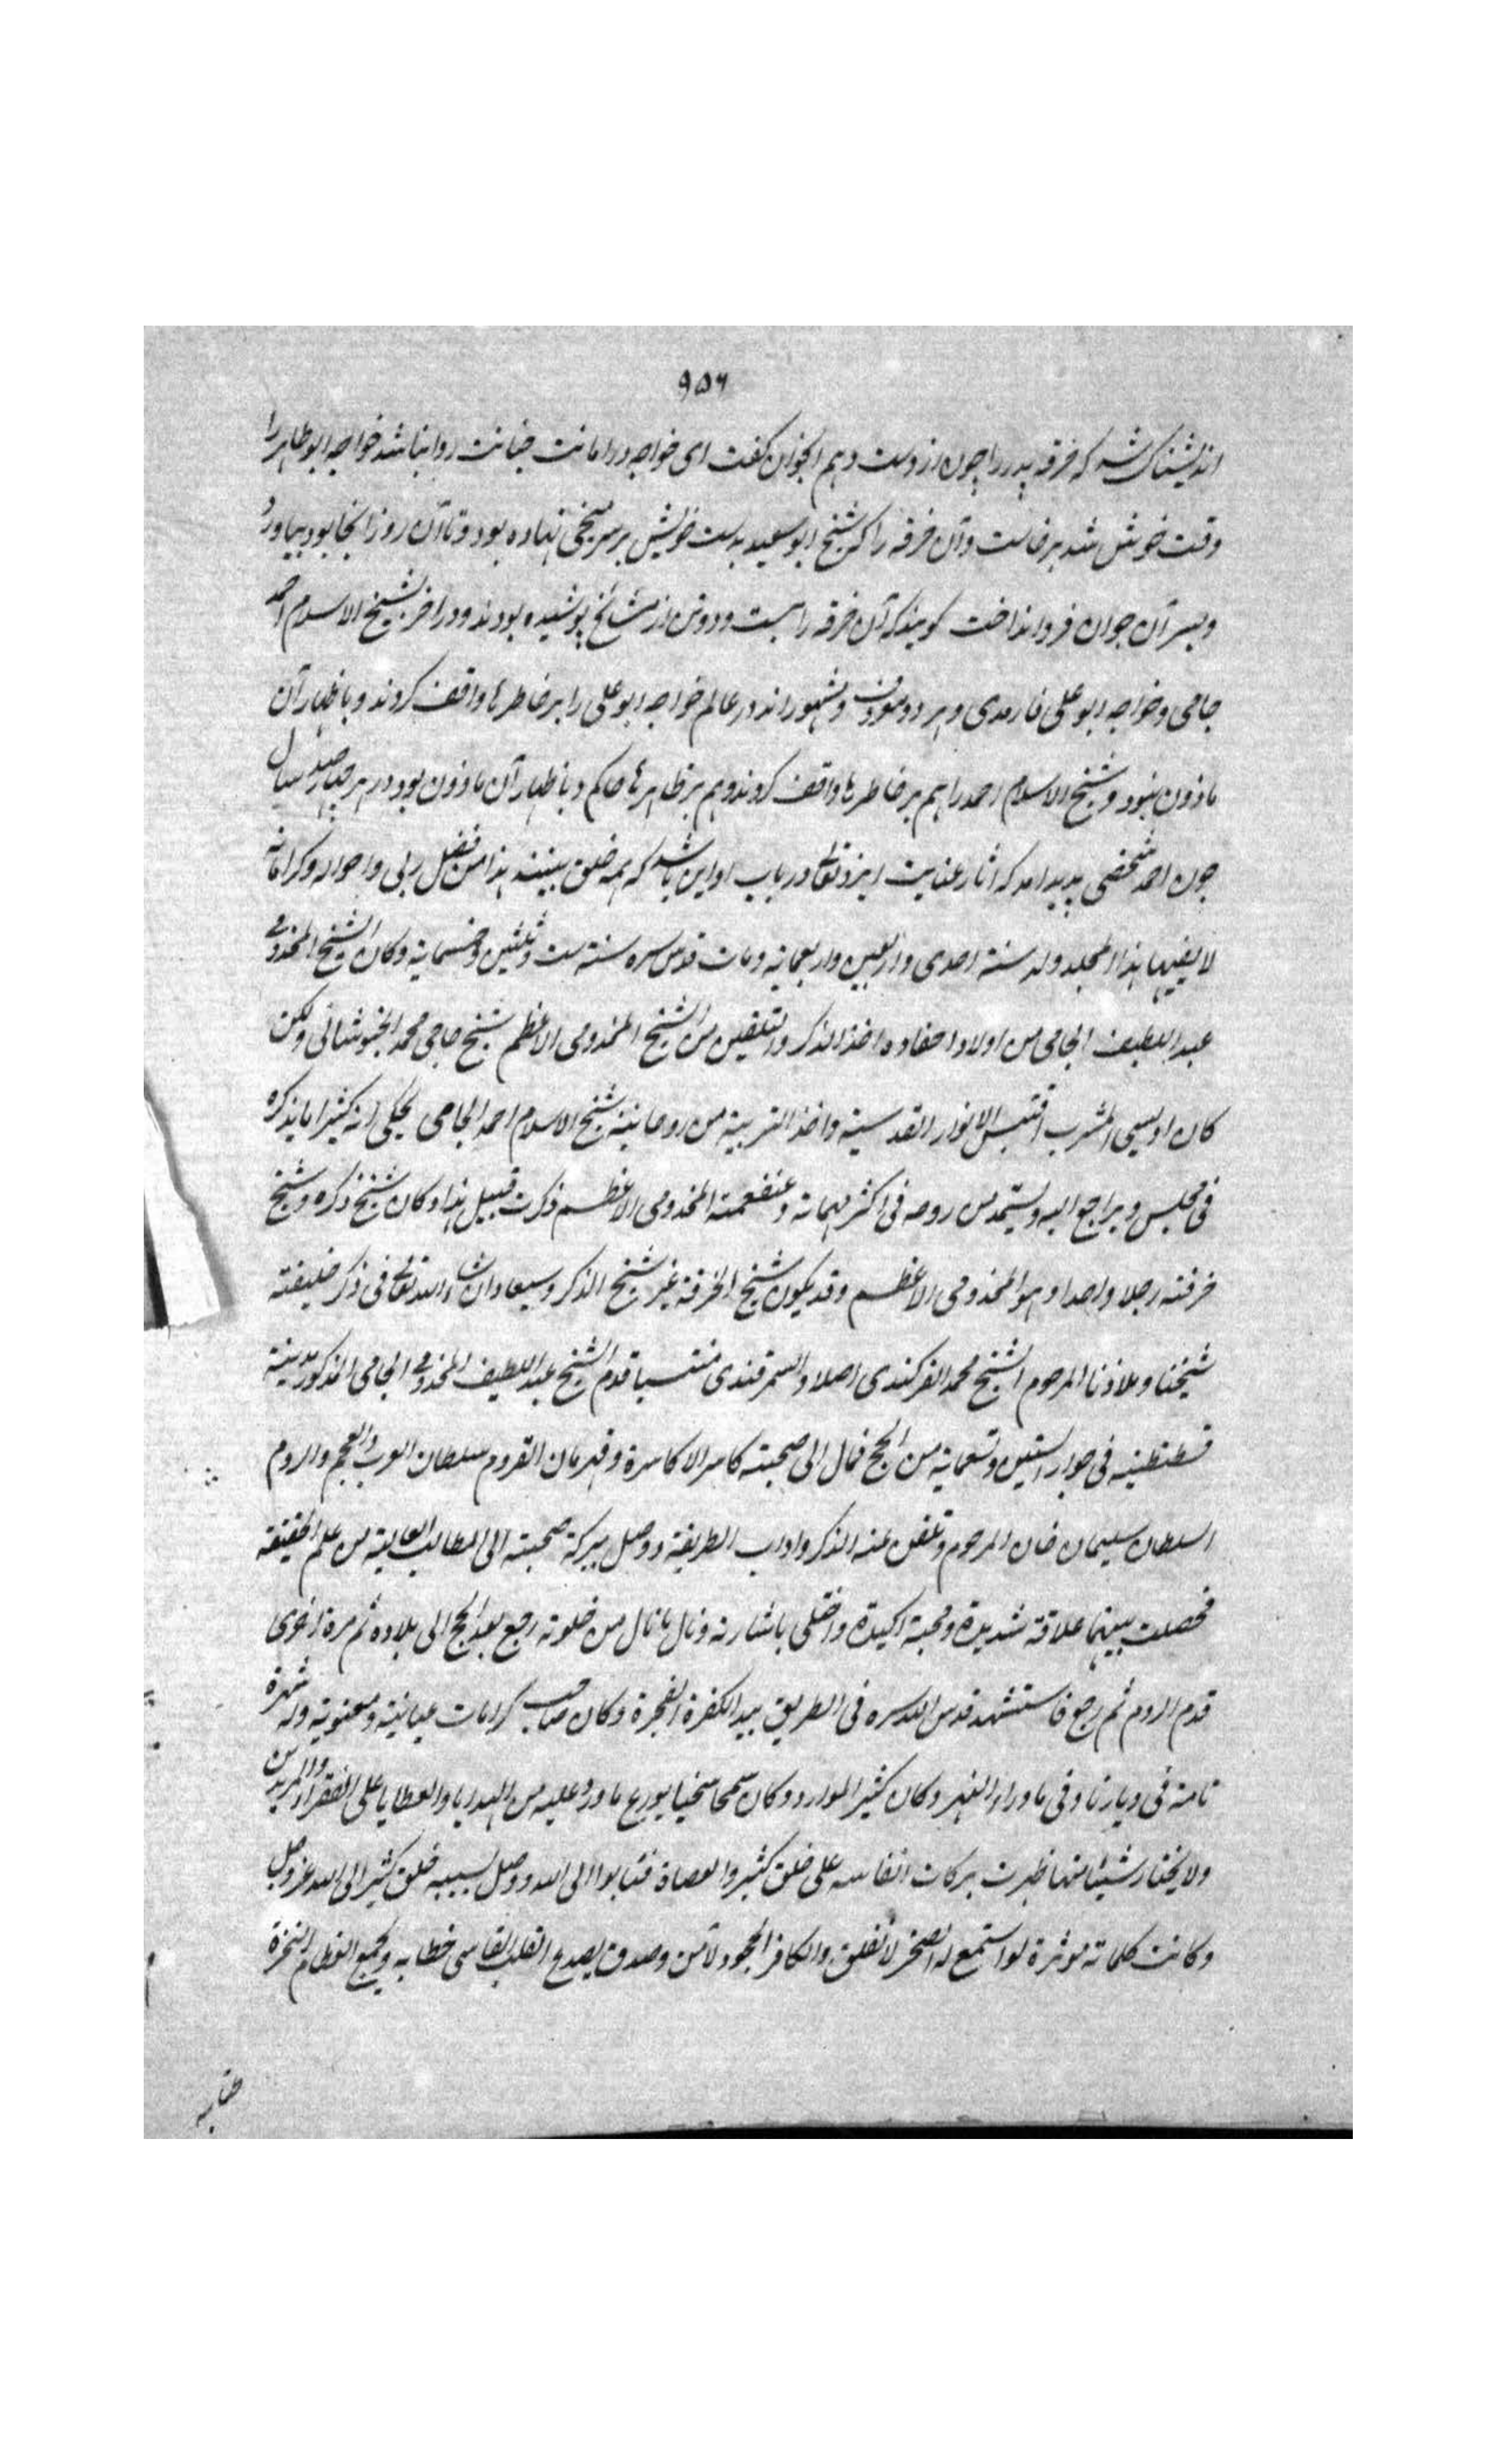 ۹۵۶
اندیشناک شد که خرقه پدر را چون از دست دهم آنجوان کفت ای خواجه در امانت خیانت روا نباشد خواجه ابو طاهر را
وقت خوش شد برخاست و آن خرقه را که شیخ ابو سعید بدست خویش بر سر میخی نهاده بود و تا آن روز آنجا بود بیاورد
و بسر آن جوان فرو انداخت کویند که آن خرقه را بیست و دو تن از مشائخ پوشیده بودند و در آخر بشیخ الاسلام احمد
جامی و خواجه ابو علی فارمدی و هر دو معروف و مشهور اند در عالم خواجه ابو علی را بر خاطرها واقف کردند و باظهار آن
ماذون نبود و شیخ الاسلام احمد را هم بر خاطرها واقف کردند و هم بر ظاهرها حاکم و باظهار آن ماذون بود در هر چهار صد سال
چون احمد شخصی پدید امد که اثار عنایت ایزد تعالی در باب او این باشد که همه خلق بینند هذا من فضل ربی و احواله و کراماته
لا یفیها هذا المجلد ولد سنة احدی و اربعین و اربعمایه و مات قدس سره سنة ست و ثلثین و خمسمایة و کان الشیخ المخدومی
عبد اللطیف الجامی من اولاد احفاده اخذ الذکر و التلقین من الشیخ المخدومی الاعظم شیخ حاجی محمد الخبوشانی و لکن
کان اویسی المشرب اقتبس الانوار القدسیة و اخذ التربیة من روحانیة شیخ الاسلام احمد الجامی یحکی انه کثیرا ما یذکره
فی مجلس و یراجع الیه و یستمد من روحه فی اکثر مهماته و المخدومی الاعظم ذکرت قبیل هذا و کان شیخ ذکره و شیخ
خرقته رجلا واحدا و هو المخدومی الاعظم و قد یکون شیخ الخرقة غیر شیخ الذکر و سیعاد ان شاء الله تعالی فی ذکر خلیفته
شیخنا و ملاذنا المرحوم الشیخ محمد الفرکندی اصلا و السمرقندی منتسبا قدم الشیخ عبد اللطیف المخدومی الجامی المذکور مدینة
قسطنطنیه فی جوار الستین و تسعمایة من الحج فمال الی صحبته کاسر الاکاسرة و قهرمان القروم سلطان العرب و العجم و الروم
السلطان سلیمان خان المرحوم و تلقن عنه الذکر و اداب الطریقة و وصل ببرکة صحبته الی المطالب العالیة من علم الحقیقة
فحصلت بینهما علاقة شدیدة و محبة اکیدة و اختلی باشارته و نال ما نال من خلوته رجع بعد الحج الی بلاده ثم مرة اخری
قدم الروم ثم رجع فاستشهد قدس الله سره فی الطریق بید الکفرة الفجرة و کان صاحب کرامات عیانیة و معنویة وله شهرة
تامة فی دیارنا و فی ماوراء النهر و کان کثیر الموارد و کان سمحا سخیا یوزع ما ورد علیه من الهدایا و العطایا علی الفقراء و المریدین
ولا یختار شیئا منها ظهرت برکات انفاسه علی خلق کثیر و العصاة فتابوا الی الله و وصل بسببه خلق کثیر الی الله عز و جل
و کانت کلماته موثرة لو استمع له الصخر لانفلق و الکافر الجحود لآمن و صدق یصدع القلب القاسی خطابه و یجمع العظام النخرة